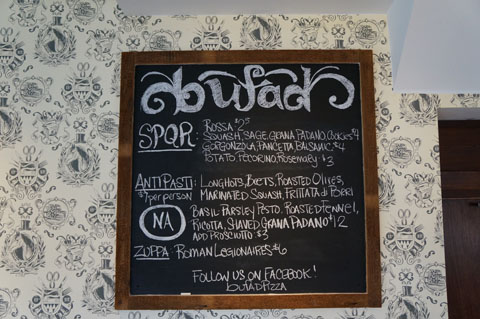 bufad
SPQR: ROSSA
SQUASH, SAGE, GRANA PADANO, COOKIES $4
GORGONZOLA, PANCETTA, BALSAMIC $4
POTATO, PECORINO, ROSEMARY $3
ANTIPASTI: LONGHOTS, BEETS, ROASTED OLIVES,
$7 per person MARINATED SQUASH, FRITTATA di BERI
NA BASIL PARSLEY PESTO, ROASTED FENNEL,
RICOTTA, SHAVED GRANA PADANO $12
ADD PROSCIUTTO $3
ZUPPA: ROMAN LEGIONAIRES $6
FOLLOW US ON FACEBOOK!
bufadpizza